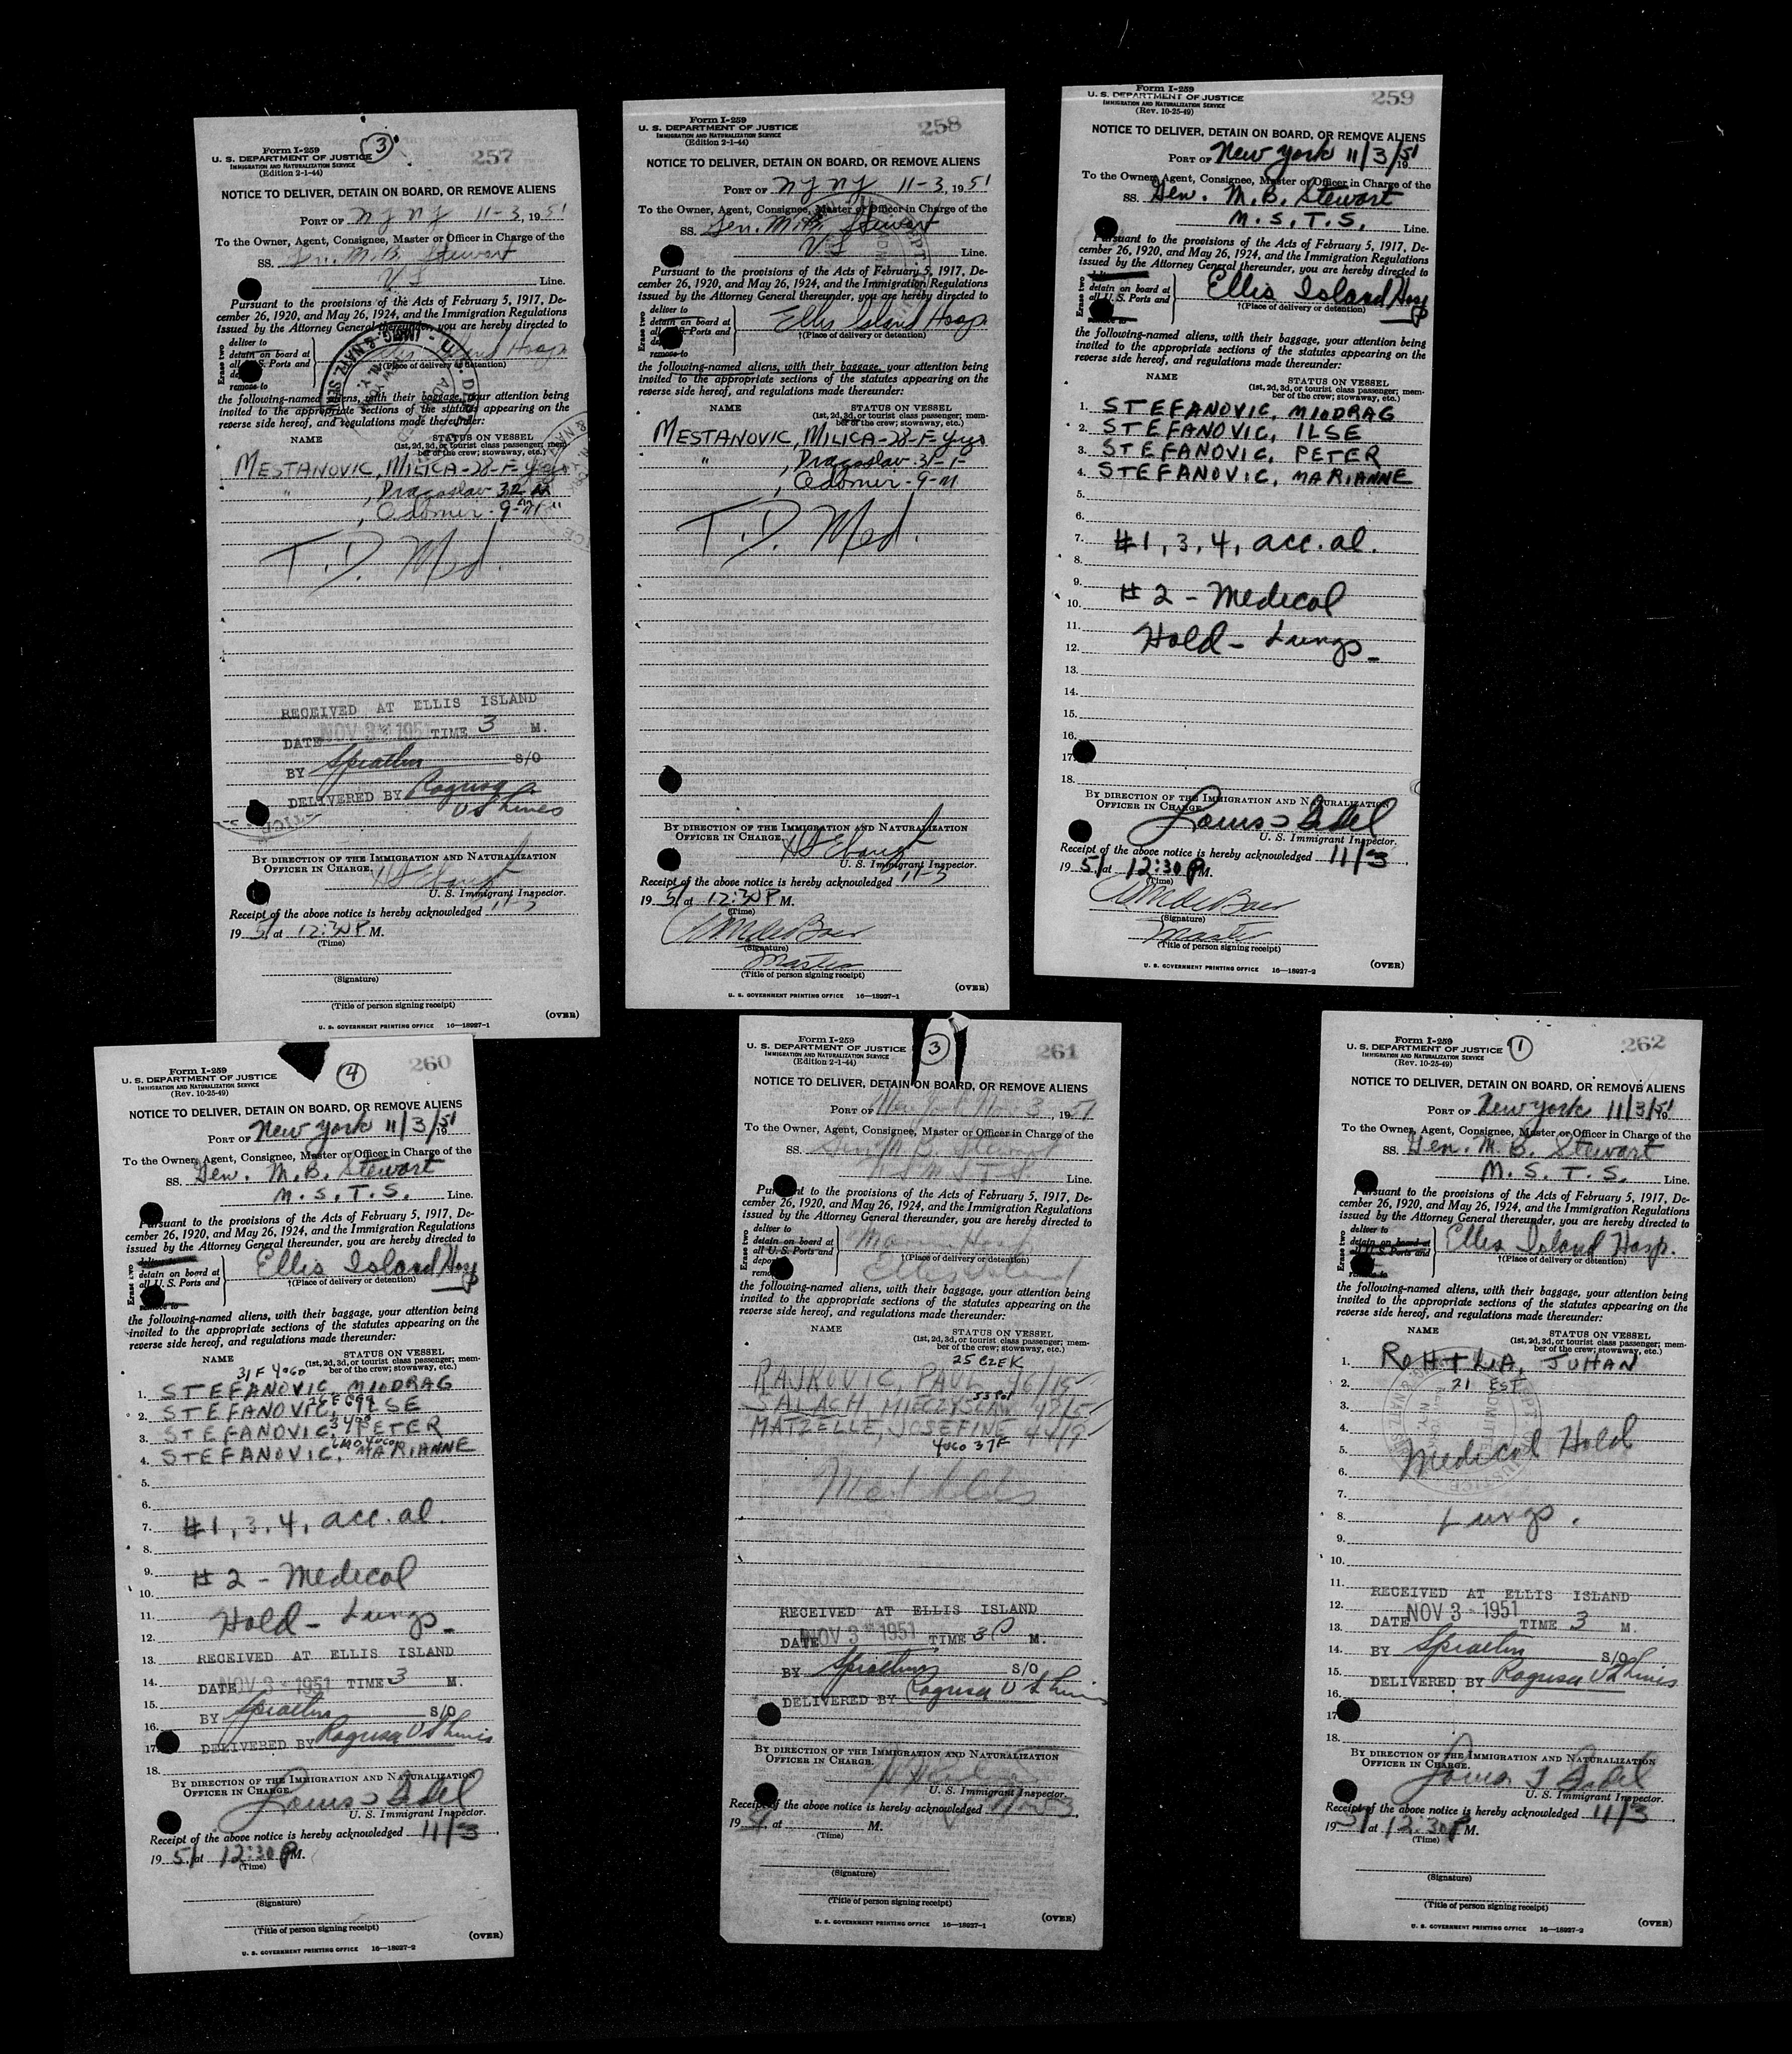 Form I-259
U. S. DEPARTMENT OF JUSTICE
IMMIGRATION AND NATURALIZATION SERVICE
(Edition 2-1-44)
3
257
NOTICE TO DELIVER, DETAIN ON BOARD, OR REMOVE ALIENS
PORT OF N Y N Y 11-3, 1951
To the Owner, Agent, Consignee, Master or Officer in Charge of the
SS. Gen. M. B. Stewart
US Line.
Pursuant to the provisions of the Acts of February 5, 1917, De-
cember 26, 1920, and May 26, 1924, and the Immigration Regulations
issued by the Attorney General thereunder, you are hereby directed to
Erase two
deliver to
detain on board at
all U. S. Ports and
remove to
Island Hosp
†(Place of delivery or detention)
the following-named aliens, with their baggage, your attention being
invited to the appropriate sections of the statutes appearing on the
reverse side hereof, and regulations made thereunder:
NAME STATUS ON VESSEL
(1st, 2d, 3d, or tourist class passenger; mem-
ber of the crew; stowaway, etc.)
MESTANOVIC, MILICA-28-F-Yugo
" , Dragoslav-32 M
, Cedomer-9-M "
T. D. Med.
RECEIVED AT ELLIS ISLAND
DATE NOV 3 - 195 TIME 3 M.
BY Spratlin S/O
DELIVERED BY Ragusa
US Lines
BY DIRECTION OF THE IMMIGRATION AND NATURALIZATION
OFFICER IN CHARGE.
U. S. Immigrant Inspector.
Receipt of the above notice is hereby acknowledged 11-3
1951 at 12:30 P M.
(Time)
(Signature)
(Title of person signing receipt)
U. S. GOVERNMENT PRINTING OFFICE 16—18927-1
(OVER)
Form I-259
U. S. DEPARTMENT OF JUSTICE
IMMIGRATION AND NATURALIZATION SERVICE
(Edition 2-1-44)
258
NOTICE TO DELIVER, DETAIN ON BOARD, OR REMOVE ALIENS
PORT OF N Y N Y 11-3, 1951
To the Owner, Agent, Consignee, Master or Officer in Charge of the
SS. Gen. M. B. Stewart
US Line.
Pursuant to the provisions of the Acts of February 5, 1917, De-
cember 26, 1920, and May 26, 1924, and the Immigration Regulations
issued by the Attorney General thereunder, you are hereby directed to
Erase two
deliver to
detain on board at
all U. S. Ports and
remove to
Ellis Island Hosp
†(Place of delivery or detention)
the following-named aliens, with their baggage, your attention being
invited to the appropriate sections of the statutes appearing on the
reverse side hereof, and regulations made thereunder:
NAME STATUS ON VESSEL
(1st, 2d, 3d, or tourist class passenger; mem-
ber of the crew; stowaway, etc.)
MESTANOVIC, MILICA-28-F-Yugo
" , Dragoslav-31-
, Cedomer-9-M
T. D. Med.
BY DIRECTION OF THE IMMIGRATION AND NATURALIZATION
OFFICER IN CHARGE.
U. S. Immigrant Inspector.
Receipt of the above notice is hereby acknowledged 11-3
1951 at 12:30 P M.
(Time)
(Signature)
Master
(Title of person signing receipt)
U. S. GOVERNMENT PRINTING OFFICE 16—18927-1
(OVER)
Form I-259
U. S. DEPARTMENT OF JUSTICE
IMMIGRATION AND NATURALIZATION SERVICE
(Rev. 10-25-49)
259
NOTICE TO DELIVER, DETAIN ON BOARD, OR REMOVE ALIENS
PORT OF New York 11/3/51
To the Owner, Agent, Consignee, Master or Officer in Charge of the
SS. Gen. M. B. Stewart
M. S. T. S. Line.
Pursuant to the provisions of the Acts of February 5, 1917, De-
cember 26, 1920, and May 26, 1924, and the Immigration Regulations
issued by the Attorney General thereunder, you are hereby directed to
Erase two
detain on board at
all U. S. Ports and
Ellis Island Hosp
†(Place of delivery or detention)
the following-named aliens, with their baggage, your attention being
invited to the appropriate sections of the statutes appearing on the
reverse side hereof, and regulations made thereunder:
NAME STATUS ON VESSEL
(1st, 2d, 3d, or tourist class passenger; mem-
ber of the crew; stowaway, etc.)
1. STEFANOVIC, MIODRAG
2. STEFANOVIC, ILSE
3. STEFANOVIC, PETER
4. STEFANOVIC, MARIANNE
5.
6.
7. #1, 3, 4, acc. al.
8.
9. #2 - Medical
10.
11. Hold - Lungs
12.
13.
14.
15.
16.
17.
18.
BY DIRECTION OF THE IMMIGRATION AND NATURALIZATION
OFFICER IN CHARGE.
U. S. Immigrant Inspector.
Receipt of the above notice is hereby acknowledged 11/3
1951 at 12:30 P M.
(Time)
(Signature)
Master
(Title of person signing receipt)
U. S. GOVERNMENT PRINTING OFFICE 16—18927-2
(OVER)
Form I-259
U. S. DEPARTMENT OF JUSTICE
IMMIGRATION AND NATURALIZATION SERVICE
(Rev. 10-25-49)
4
260
NOTICE TO DELIVER, DETAIN ON BOARD, OR REMOVE ALIENS
PORT OF New York 11/3/51
To the Owner, Agent, Consignee, Master or Officer in Charge of the
SS. Gen. M. B. Stewart
M. S. T. S. Line.
Pursuant to the provisions of the Acts of February 5, 1917, De-
cember 26, 1920, and May 26, 1924, and the Immigration Regulations
issued by the Attorney General thereunder, you are hereby directed to
Erase two
detain on board at
all U. S. Ports and
Ellis Island Hosp
†(Place of delivery or detention)
the following-named aliens, with their baggage, your attention being
invited to the appropriate sections of the statutes appearing on the
reverse side hereof, and regulations made thereunder:
NAME STATUS ON VESSEL
(1st, 2d, 3d, or tourist class passenger; mem-
ber of the crew; stowaway, etc.)
31 F YUGO
1. STEFANOVIC, MIODRAG
2. STEFANOVIC, ILSE
3. STEFANOVIC, PETER
4. STEFANOVIC, MARIANNE
5.
6.
7. #1, 3, 4, acc. al.
8.
9. #2 - Medical
10.
11. Hold - Lungs
12.
13. RECEIVED AT ELLIS ISLAND
14. DATE NOV 3 - 1951 TIME 3 M.
15. BY Spratlin S/O
16.
17. DELIVERED BY Ragusa US Lines
18.
BY DIRECTION OF THE IMMIGRATION AND NATURALIZATION
OFFICER IN CHARGE.
U. S. Immigrant Inspector.
Receipt of the above notice is hereby acknowledged 11/3
1951 at 12:30 P M.
(Time)
(Signature)
(Title of person signing receipt)
U. S. GOVERNMENT PRINTING OFFICE 16—18927-2
(OVER)
Form I-259
U. S. DEPARTMENT OF JUSTICE
IMMIGRATION AND NATURALIZATION SERVICE
(Edition 2-1-44)
3
261
NOTICE TO DELIVER, DETAIN ON BOARD, OR REMOVE ALIENS
PORT OF New York Nov 3, 1951
To the Owner, Agent, Consignee, Master or Officer in Charge of the
SS. Gen M. B. Stewart
U S M. S. T. S. Line.
Pursuant to the provisions of the Acts of February 5, 1917, De-
cember 26, 1920, and May 26, 1924, and the Immigration Regulations
issued by the Attorney General thereunder, you are hereby directed to
Erase two
deliver to
detain on board at
all U. S. Ports and
Hosp
†(Place of delivery or detention)
Ellis Island
the following-named aliens, with their baggage, your attention being
invited to the appropriate sections of the statutes appearing on the
reverse side hereof, and regulations made thereunder:
NAME STATUS ON VESSEL
(1st, 2d, 3d, or tourist class passenger; mem-
ber of the crew; stowaway, etc.)
25 CZEK
RAJKOVIC, PAUL 46/15
53 Pol
SALACH, MIECZYSLAW 42/5
MATZELLE, JOSEFINE 44/9
YUGO 37F
Med holds
RECEIVED AT ELLIS ISLAND
DATE NOV 3 - 1951 TIME 3 P M.
BY Spratlin S/O
DELIVERED BY Ragusa US Lines
BY DIRECTION OF THE IMMIGRATION AND NATURALIZATION
OFFICER IN CHARGE.
U. S. Immigrant Inspector.
Receipt of the above notice is hereby acknowledged Nov 3
1951 at M.
(Time)
(Signature)
(Title of person signing receipt)
U. S. GOVERNMENT PRINTING OFFICE 16—18927-1
(OVER)
Form I-259
U. S. DEPARTMENT OF JUSTICE
IMMIGRATION AND NATURALIZATION SERVICE
(Rev. 10-25-49)
1
262
NOTICE TO DELIVER, DETAIN ON BOARD, OR REMOVE ALIENS
PORT OF New York 11/3/51
To the Owner, Agent, Consignee, Master or Officer in Charge of the
SS. Gen. M. B. Stewart
M. S. T. S. Line.
Pursuant to the provisions of the Acts of February 5, 1917, De-
cember 26, 1920, and May 26, 1924, and the Immigration Regulations
issued by the Attorney General thereunder, you are hereby directed to
Erase two
deliver to
detain on board at
all U. S. Ports and
Ellis Island Hosp.
†(Place of delivery or detention)
the following-named aliens, with their baggage, your attention being
invited to the appropriate sections of the statutes appearing on the
reverse side hereof, and regulations made thereunder:
NAME STATUS ON VESSEL
(1st, 2d, 3d, or tourist class passenger; mem-
ber of the crew; stowaway, etc.)
1. JUHAN
2. 21 EST
3.
4.
5. Medical Hold
6.
7.
8. Lungs.
9.
10.
11. RECEIVED AT ELLIS ISLAND
12.
13. DATE NOV 3 - 1951 TIME 3 M.
14. BY Spratlin S/O
15. DELIVERED BY Ragusa US Lines
16.
17.
18.
BY DIRECTION OF THE IMMIGRATION AND NATURALIZATION
OFFICER IN CHARGE.
U. S. Immigrant Inspector.
Receipt of the above notice is hereby acknowledged 11/3
1951 at 12:30 P M.
(Time)
(Signature)
(Title of person signing receipt)
U. S. GOVERNMENT PRINTING OFFICE 16—18927-2
(OVER)